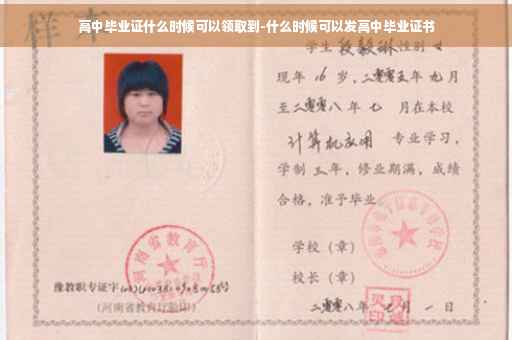 高中毕业证什么时候可以领取到-什么时候可以发高中毕业证书
样本
学生 段毅琳 性别 女
现年 16 岁,二零零五年 九月
至二零零八年 七 月在本校
计算机应用 专业学习,
学制 三 年,修业期满,成绩
合格,准予毕业。
河南省教育厅
学校(章)
校长(章)
豫教职专证字
(河南省教育厅验印)
二零零八年 七 月 一 日